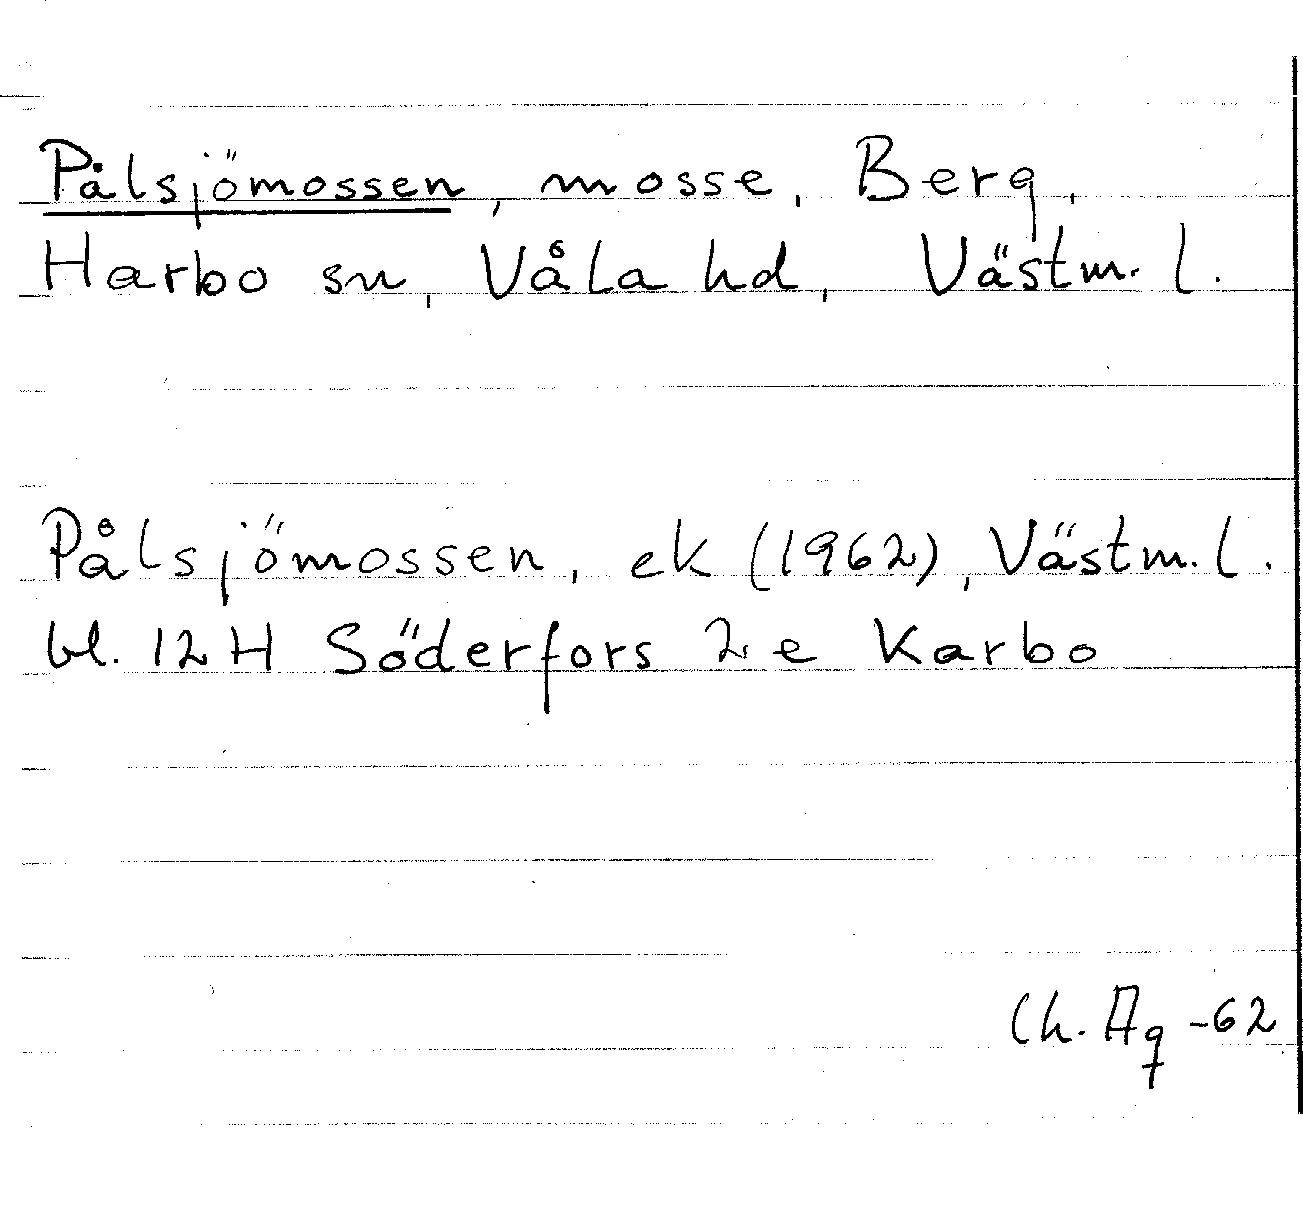 Pålsjömossen, mosse, Berg,
Harbo sn, Våla hd, Västm. l.
Pålsjömossen, ek (1962), Västm. l.
bl. 12 H Söderfors 2 e Karbo
Ch. Ag -62